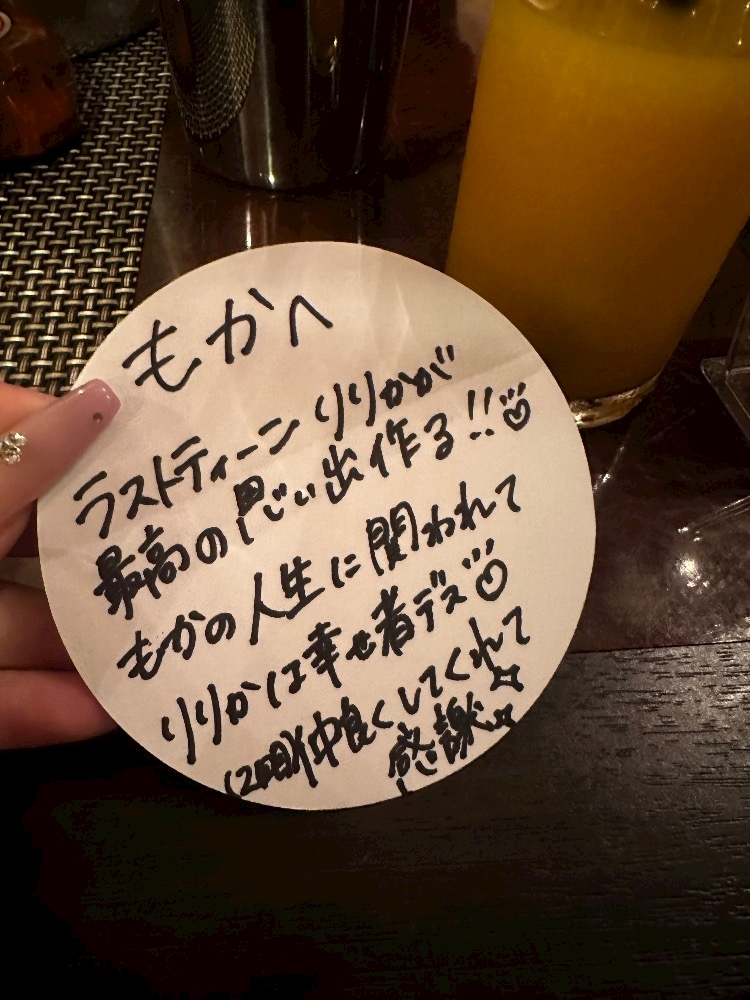 もかへ
ラストティーン りりかが
最高の思い出作る!!♡
もかの人生に関われて
りりかは幸せ者デス♡
仲良くしてくれて
感謝☆